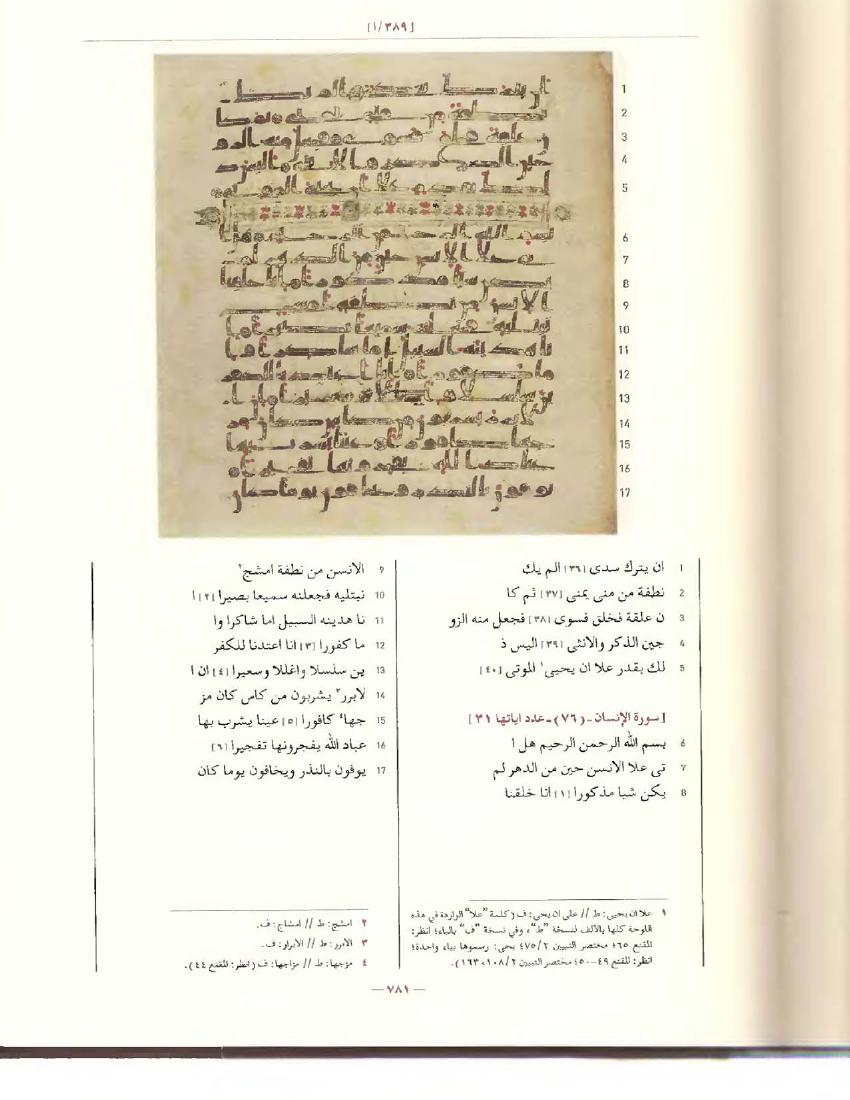 [١/٣٨٩]
1
2
3
4
5
6
7
8
9
10
11
12
13
14
15
16
17
1 ان يترك سدى [٣٦] الم يك
2 نطفة من منى يمنى [٣٧] ثم كا
3 ن علقة فخلق فسوى [٣٨] فجعل منه الزو
4 جين الذكر والانثى [٣٩] اليس ذ
5 لك بقدر علا ان يحيى١ الموتى [٤٠]
[سورة الإنسان - (٧٦) - عدد اياتها ٣١]
6 بسم الله الرحمن الرحيم هل ا
7 تى علا الانسن حين من الدهر لم
8 يكن شيا مذكورا [١] انا خلقنا
9 الانسن من نطفة امشج٢
10 نبتليه فجعلنه سميعا بصيرا [٢] ا
11 نا هدينه السبيل اما شاكرا وا
12 ما كفورا [٣] انا اعتدنا للكفر
13 ين سلسلا واغللا وسعيرا [٤] ان ا
14 لابرر٣ يشربون من كاس كان مز
15 جها٤ كافورا [٥] عينا يشرب بها
16 عباد الله يفجرونها تفجيرا [٦]
17 يوفون بالنذر ويخافون يوما كان
١ علا ان يحيى: ط // على ان يحى: ف (كلمة "علا" الواردة في هذه
اللوحة كلها بالألف لنسخة "ط"، وفي نسخة "ف" بالياء؛ انظر:
المقنع ٦٥؛ مختصر التبيين ٧٥/٢؛ يحى: رسموها بياء واحدة؛
انظر: المقنع ٤٩-٥٠؛ مختصر التبيين ١٠٨/٢، ١٦٣).
٢ امشج: ط // امشاج: ف.
٣ الابرر: ط // الابرار: ف.
٤ مزجها: ط // مزاجها: ف (انظر: المقنع ٤٤).
— ٧٨١ —